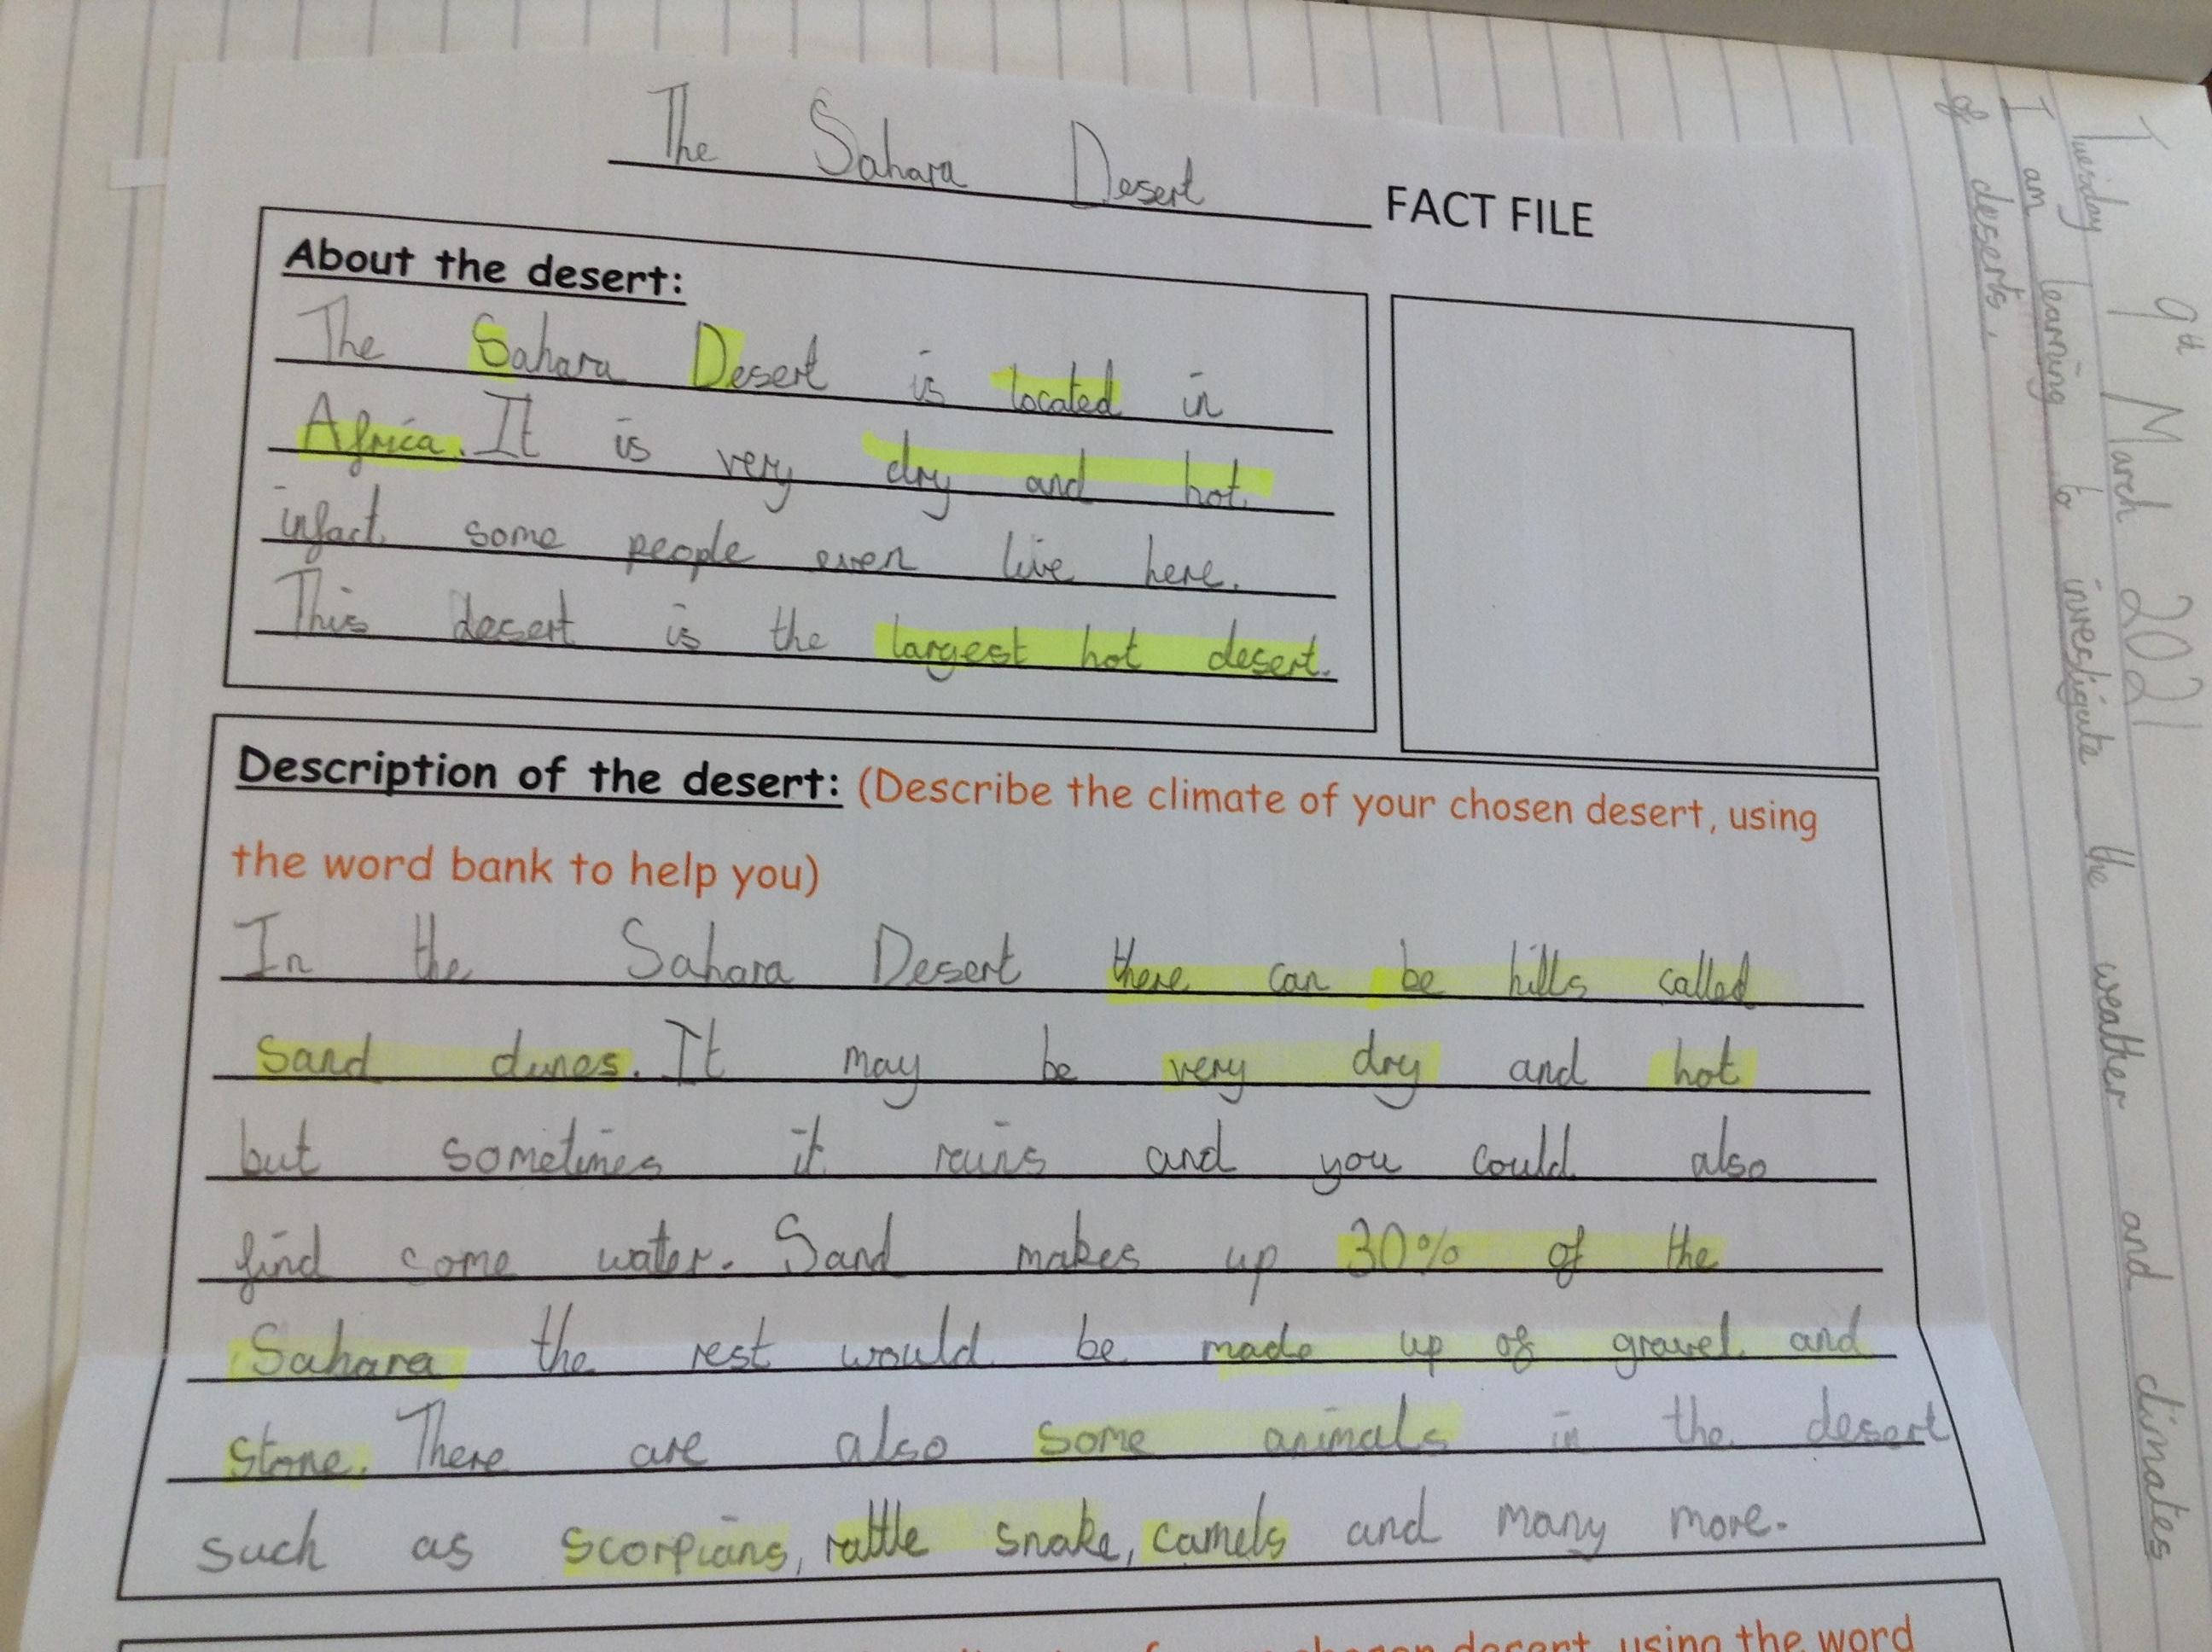 The Sahara Desert FACT FILE
About the desert:
The Sahara Desert is located in
Africa. It is very dry and hot.
infact some people even live here.
This desert is the largest hot desert.
Description of the desert: (Describe the climate of your chosen desert, using
the word bank to help you)
In the Sahara Desert there can be hills called
Sand dunes. It may be very dry and hot
but sometimes it rains and you could also
find some water. Sand makes up 30% of the
Sahara the rest would be made up of gravel and
Stone. There are also some animals in the desert
such as scorpians, rattle snake, camels and many more.
chosen desert, using the word
Tuesday 9th March 2021
I am learning to investigate the weather and climates
of deserts.